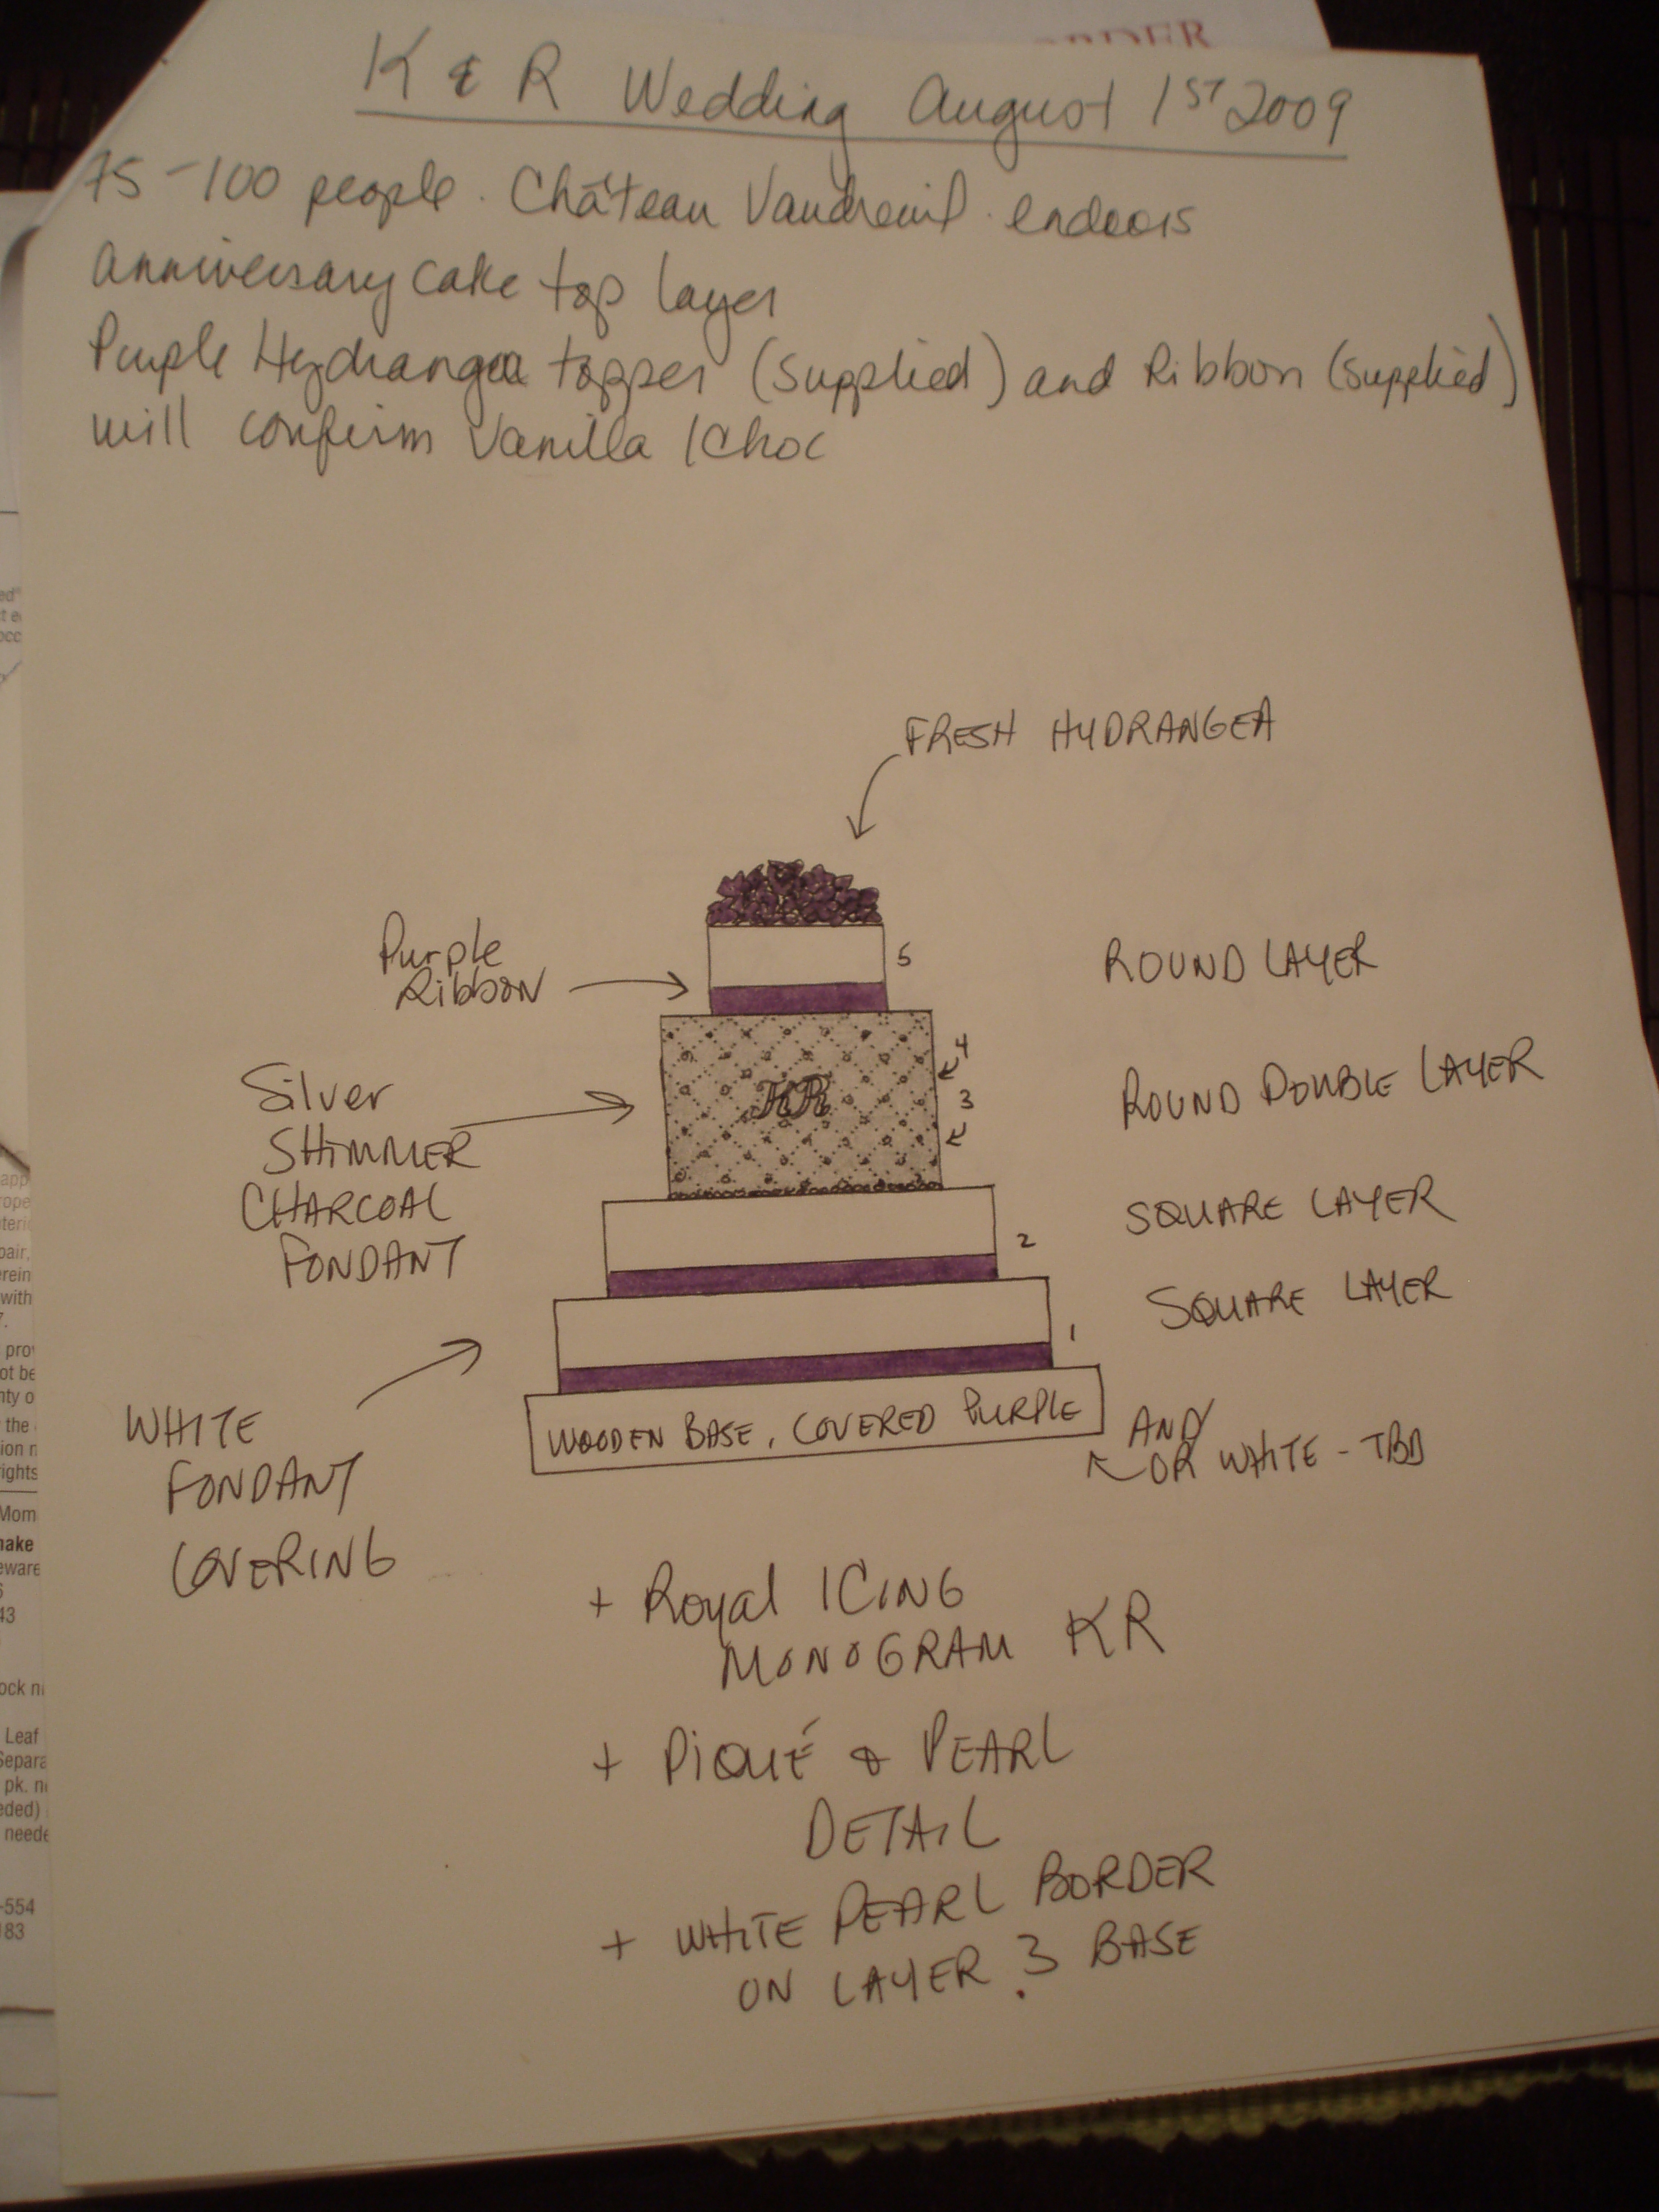 K & R Wedding August 1ST 2009
75-100 people. Château Vaudreuil. endoors
anniversary cake top layer
Purple Hydrangea topper (supplied) and Ribbon (supplied)
will confirm Vanilla / Choc
FRESH HYDRANGEA
Purple
Ribbon
5
ROUND LAYER
Silver
SHIMMER
CHARCOAL
FONDANT
KR
4
3
ROUND DOUBLE LAYER
2
SQUARE LAYER
1
SQUARE LAYER
WHITE
FONDANT
COVERING
WOODEN BASE, COVERED PURPLE
AND/
OR WHITE - TBD
+ Royal ICING
MONOGRAM KR
+ PIQUÉ & PEARL
DETAIL
+ WHITE PEARL BORDER
ON LAYER 3 BASE
ed"
app
pair,
with
the
rights
Mom
Leaf
pk.
-554
183